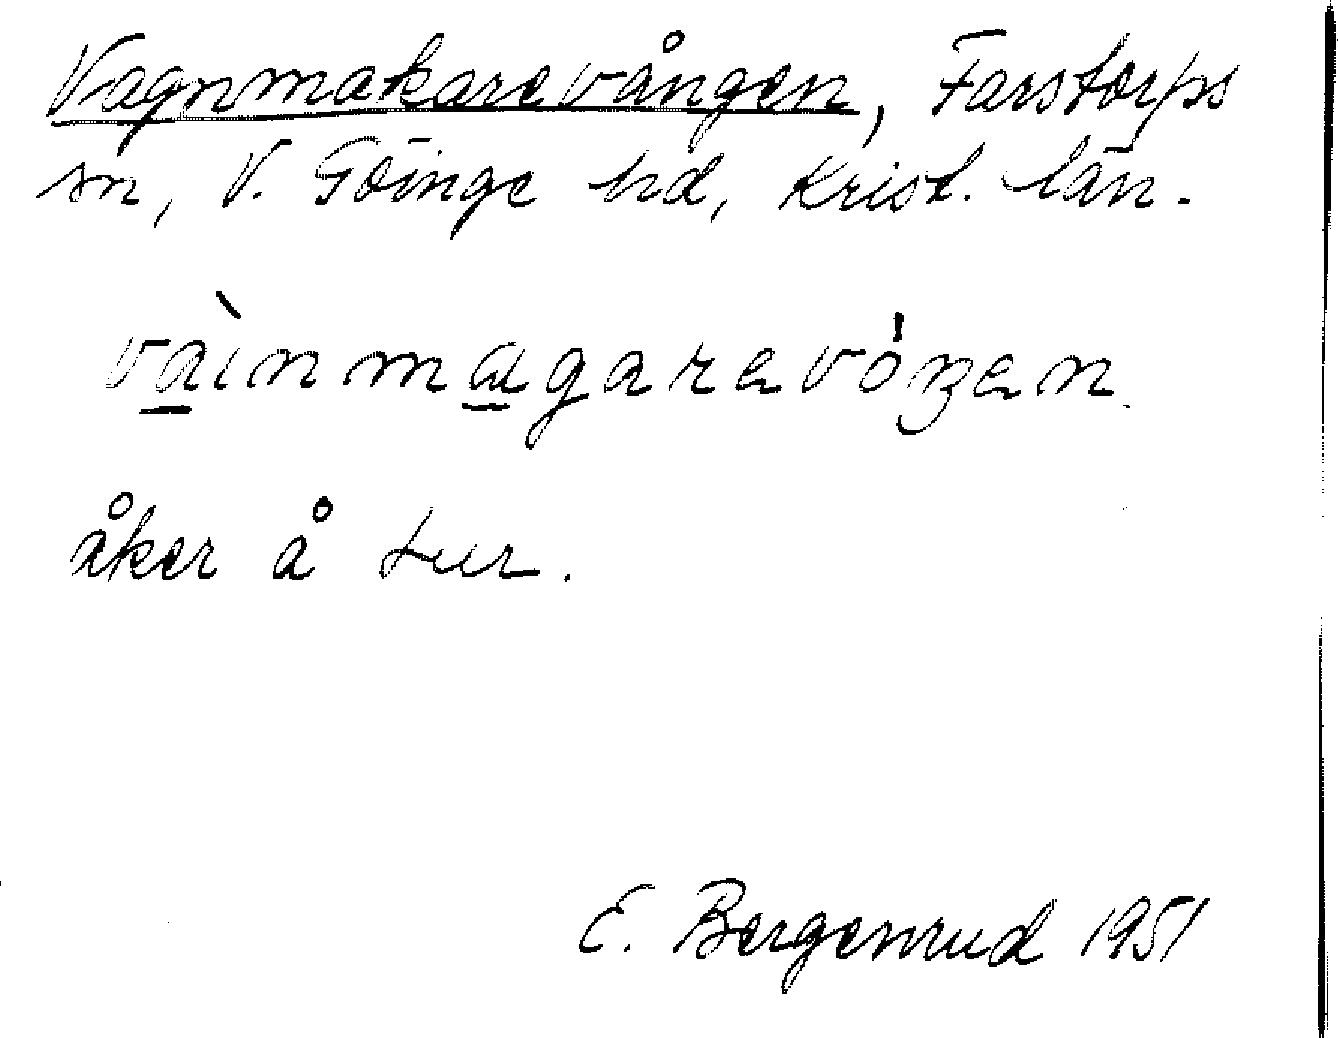 Vagnmakarevången, Farstorps
sn, V. Göinge hd, Krist. län.
va̱ìnma̱garavóŋan
åker å tur.
E. Bergenrud 1951